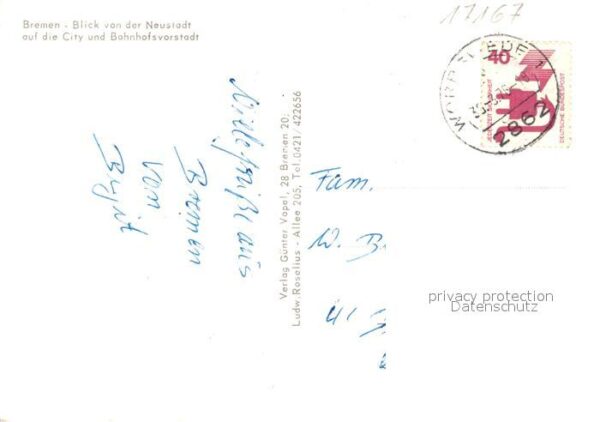 Bremen - Blick von der Neustadt
auf die City und Bahnhofsvorstadt
17167
WORPSWEDE 1
2862
40
JEDERZEIT SICHERHEIT
DEUTSCHE BUNDESPOST
Viele Grüße aus
Bremen
von
Birgit
Verlag Günter Vopel, 28 Bremen 20,
Ludw.-Roselius - Allee 205, Tel. 0421/422656
Fam.
W. B
41
privacy protection
Datenschutz